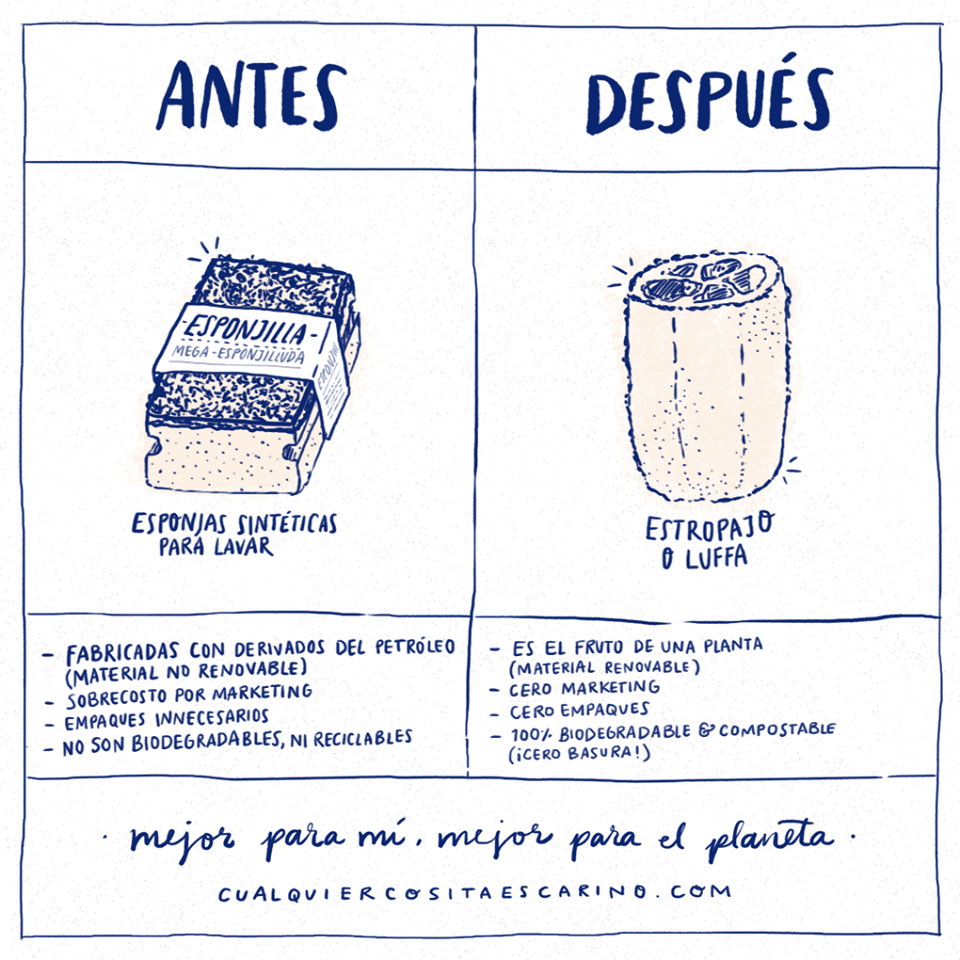 ANTES
DESPUÉS
- ESPONJILLA -
MEGA - ESPONJILLUDA
ESPONJILLA
ESPONJAS SINTÉTICAS
PARA LAVAR
ESTROPAJO
O LUFFA
- FABRICADAS CON DERIVADOS DEL PETRÓLEO
(MATERIAL NO RENOVABLE)
- SOBRECOSTO POR MARKETING
- EMPAQUES INNECESARIOS
- NO SON BIODEGRADABLES, NI RECICLABLES
- ES EL FRUTO DE UNA PLANTA
(MATERIAL RENOVABLE)
- CERO MARKETING
- CERO EMPAQUES
- 100% BIODEGRADABLE & COMPOSTABLE
(¡CERO BASURA!)
· mejor para mí, mejor para el planeta ·
CUALQUIERCOSITAESCARINO.COM